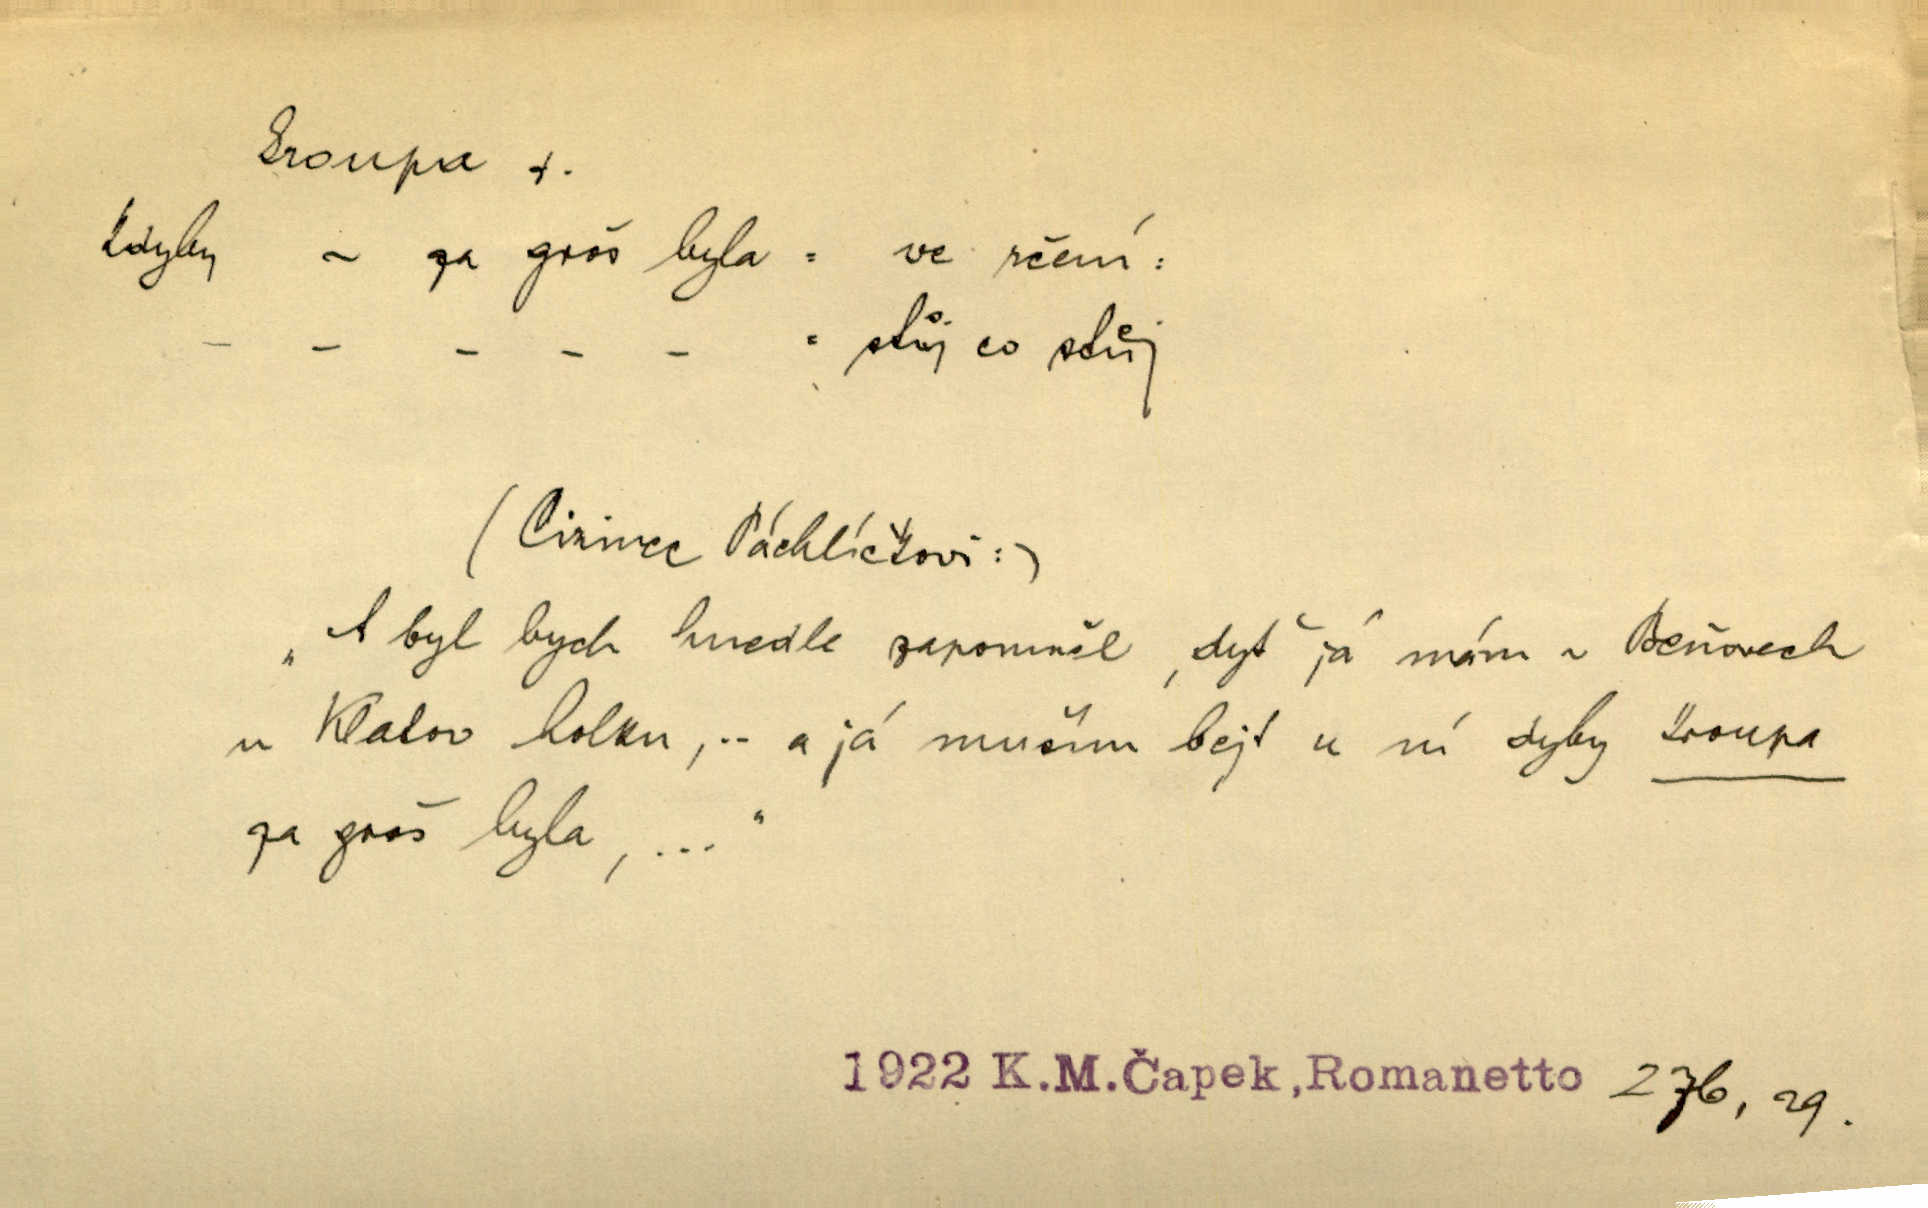 kroupa f.
kdyby ~ za groš byla = ve rčení:
– – – – – = stůj co stůj
(Cizinec Páchlíčkovi:)
„A byl bych hnedle zapomněl, dyť já mám v Beňovech
u Klatov holku, .. a já mušim bejt u ní dyby kroupa
za groš byla, ..."
1922 K.M.Čapek, Romanetto 276, 29.